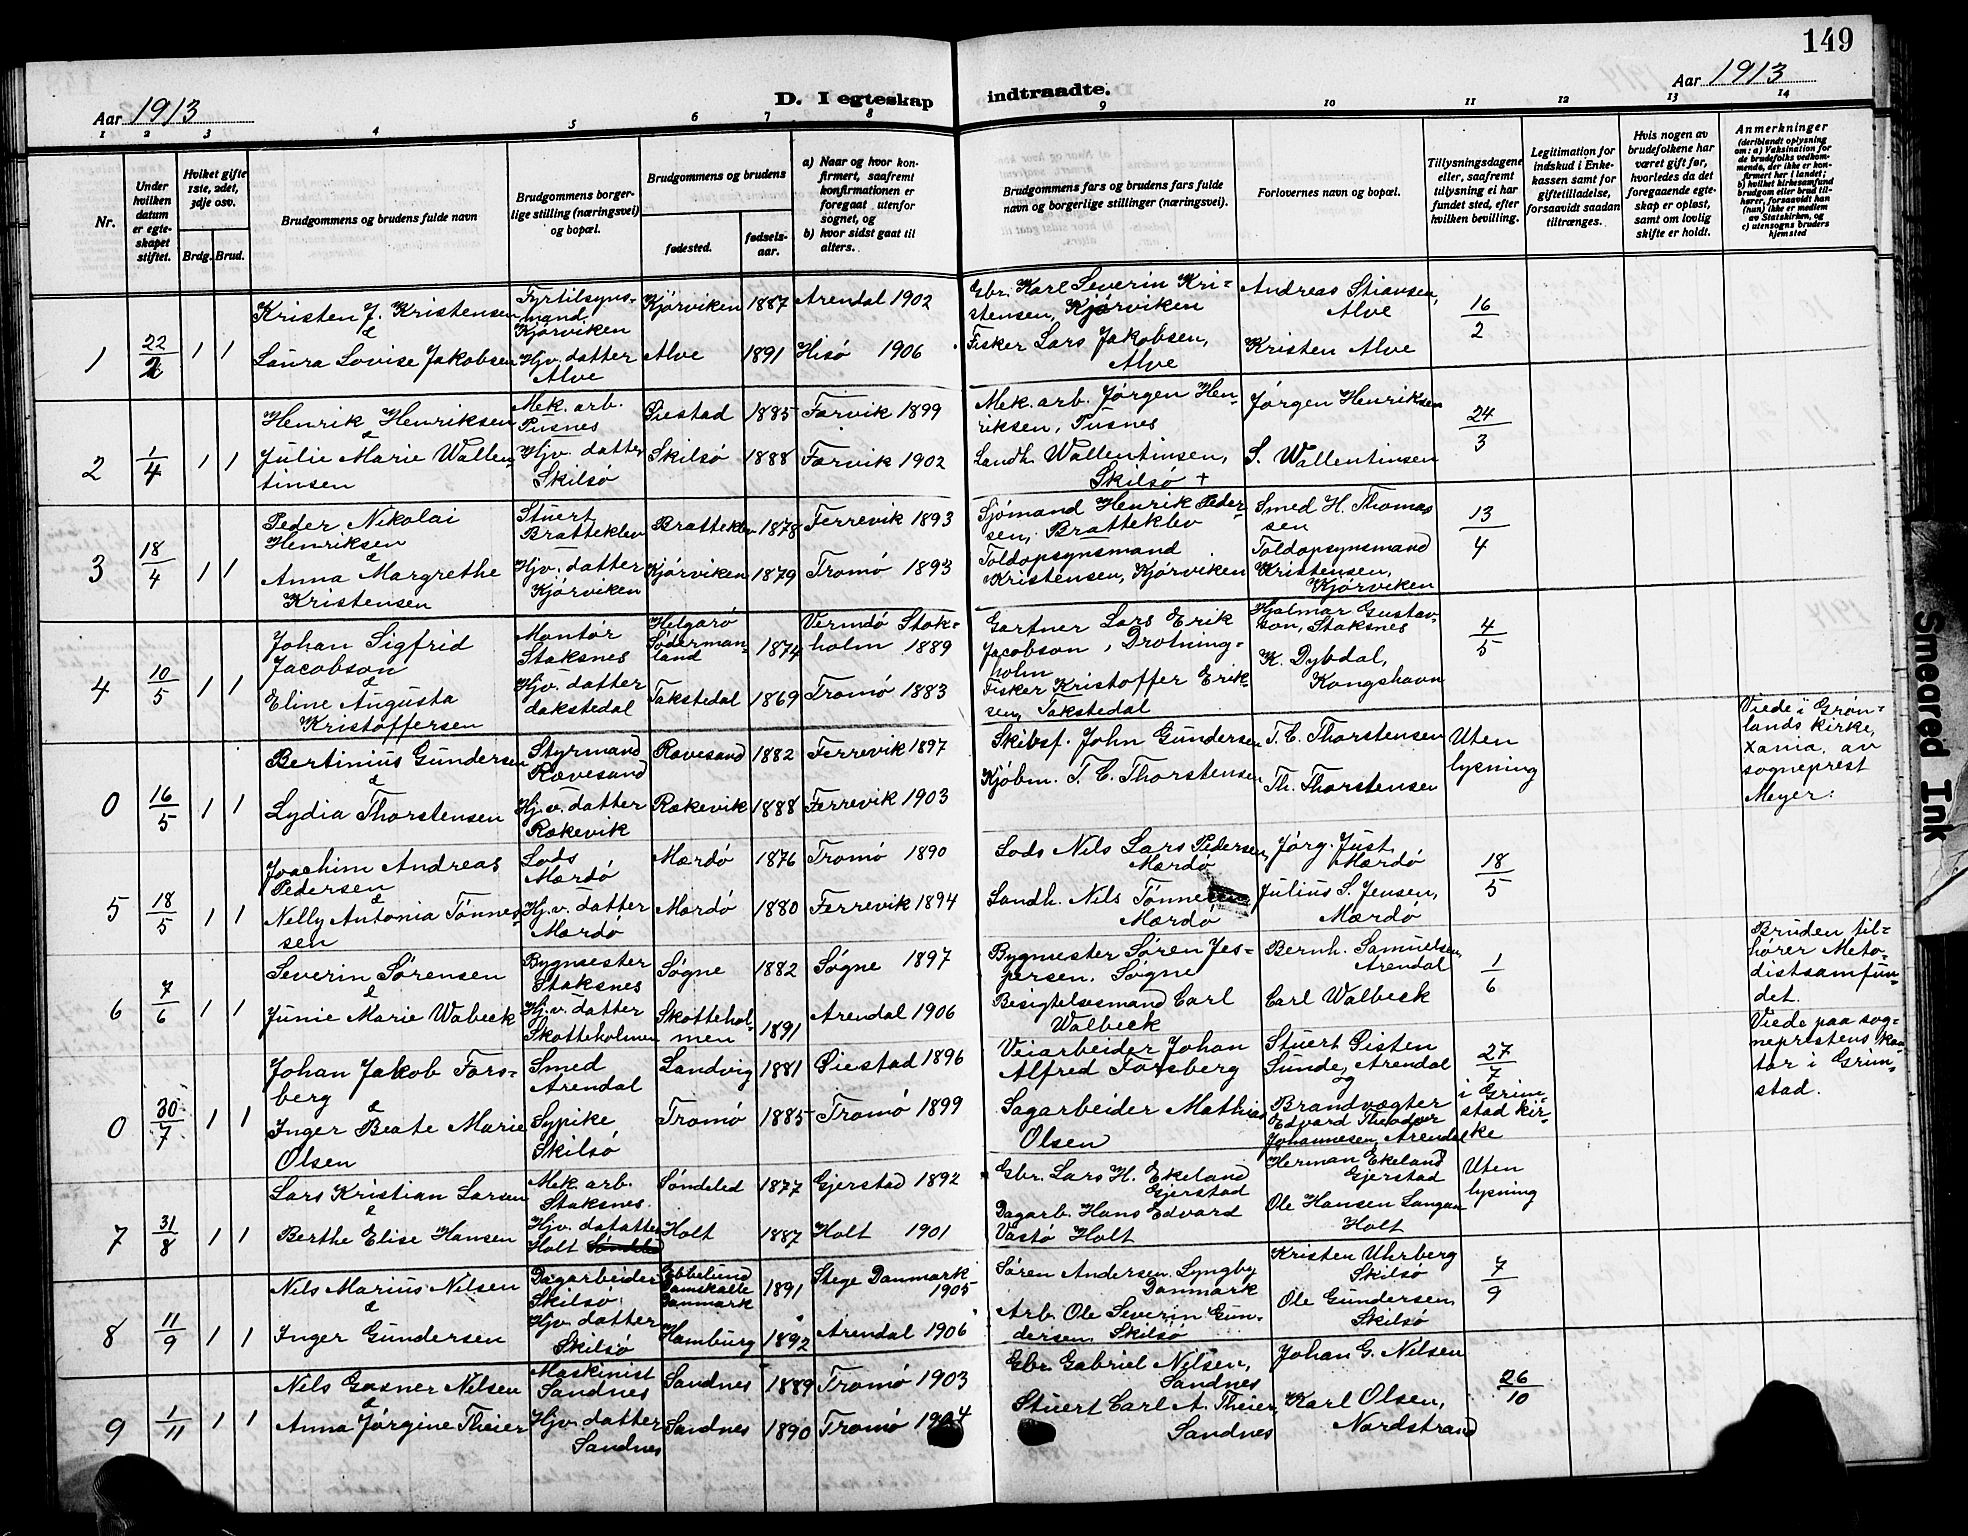 149
Aar 1913
D. I egteskap indtraadte.
Aar 1913
1 2 3 4 5 6 7 8 9 10 11 12 13 14
Nr.
Under hvilken datum er egteskapet stiftet.
Hvilket gifte 1ste, 2det, 3dje osv.
Brdg. Brud.
Brudgommens og brudens fulde navn
Brudgommens borgerlige stilling (næringsvei) og bopæl.
Brudgommens og brudens
fødested.
fødselsaar.
a) Naar og hvor konfirmert, saafremt konfirmationen er foregaaet utenfor sognet, og
b) hvor sidst gaat til alters.
Brudgommens fars og brudens fars fulde navn og borgerlige stillinger (næringsvei).
Forlovernes navn og bopæl.
Tillysningsdagene eller, saafremt tillysning ei har fundet sted, efter hvilken bevilling.
Legitimation for indskud i Enkekassen samt for giftetilladelse, forsaavidt saadan tiltrænges.
Hvis nogen av brudefolkene har været gift før, hvorledes da det foregaaende egteskap er opløst, samt om lovlig skifte er holdt.
Anmerkninger
(deriblandt oplysning om: a) Vaksination for de brudefolks vedkommende, der ikke er konfirmert her i landet; b) hvilket kirkesamfund brudgom eller brud tilhører, forsaavidt han (hun) ikke er medlem av Statskirken, og c) utensogns bruders hjemsted
1 22/2 1 1
Kristen J. Kristensen
&
Laura Lovise Jakobsen
Fyrtilsynsmand. Kjörviken
Hjv. datter Alve
Kjörviken 1887 Arendal 1902
Alve 1891 Hisö 1906
Gbr. Karl Severin Kristensen, Kjørviken
Fisker Lars Jakobsen, Alve
Andreas Stiansen, Alve
Kristen Alve
16/2
2 1/4 1 1
Henrik Henriksen
&
Julie Marie Wallentinsen
Mek. arb. Pusnes
Hjv. datter Skilsö
Øiestad 1885 Færvik 1899
Skilsö 1888 Færvik 1902
Mek. arb. Jørgen Henriksen, Pusnes
Landh. Wallentinsen, Skilsö +
Jørgen Henriksen
S. Wallentinsen
24/3
3 18/4 1 1
Peder Nikolai Henriksen
&
Anna Margrethe Kristensen
Stuert Bratteklev
Hjv. datter Kjörviken
Bratteklev 1878 Ferrevik 1893
Kjörviken 1879 Tromö 1893
Sjömand Henrik Pedersen, Bratteklev
Toldopsynsmand Kristensen, Kjörviken
Smed H. Thomassen
Toldopsynsmand Kristensen, Kjörviken
13/4
4 10/5 1 1
Johan Sigfrid Jacobson
&
Eline Augusta Kristoffersen
Montör Staksnes
Hjv. datter dakstedal
Helgarö Södermanland 1874 Vermdö Stokholm 1889
Takstedal 1869 Tromö 1883
Gartner Lars Erik Jacobson, Drotningholm
Fisker Kristoffer Eriksen, Takstedal
Hjalmar Gustavson, Staksnes
K. Dybdal, Kongshavn
4/5
0 16/5 1 1
Bertinius Gundersen
&
Lydia Thorstensen
Styrmand Rævesand
Hj. v. datter Rækevik
Rævesand 1882 Ferrevik 1897
Rækevik 1888 Ferrevik 1903
Skibsf. John Gundersen
Kjöbm. T. C. Thorstensen
T. C. Thorstensen
Th. Thorstensen
Uten lysning
Viede i Grønlands kirke, Xania, av sogneprest Meyer.
5 18/5 1 1
Joachim Andreas Pedersen
&
Nelly Antonia Tönnesen
Lods Mærdö
Hj. v. datter Mærdö
Mærdö 1876 Tromö 1890
Mærdö 1880 Ferrevik 1894
Lods Nils Lars Pedersen, Mærdö
Landh. Nils Tønnesen Mærdö
Jörg. Just Mærdö
Julius S. Jensen, Mærdö
18/5
6 7/6 1 1
Severin Sörensen
&
Junie Marie Wabeck
Bygmester Staksnes
Hj. v. datter Skotteholmen
Søgne 1882 Søgne 1897
Skotteholmen 1891 Arendal 1906
Bygmester Søren Jespersen. Søgne
Besigtelsesmand Carl Walbeck
Bernh. Samuelsen, Arendal
Carl Walbeck
1/6
Bruden tilhører Metodistsamfundet.
0 30/7 1 1
Johan Jakob Forsberg
&
Inger Beate Marie Olsen
Smed Arendal
Sypike, Skilsö
Landvig 1881 Øiestad 1896
Tromö 1885 Tromö 1899
Veiarbeider Johan Alfred Forsberg
Sagarbeider Mathias Olsen
Stuert Gisten Sunde, Arendal
og
Brandvægter Edvard Theodor Johannesen, Arendal
27/7 i Grimstad kirke
Viede paa sogneprestens kontor i Grimstad.
7 31/8 1 1
Lars Kristian Larsen
&
Berthe Elise Hansen
Mek. arb. Staksnes.
Hjv. datatter Holt Søndeled
Söndeled 1877 Gjerstad 1892
Holt 1887 Holt 1901
Gbr. Lars H. Ekeland Gjerstad
Dagarb. Hans Edvard Vastø Holt
Herman Ekeland Gjerstad
Ole Hansen Langan Holt
Uten lysning
8 11/9 1 1
Nils Marius Nilsen
&
Inger Gundersen
Dagarbeider Skilsö
Hjv. datter Skilsö
Ebbelund Damskatte Danmark 1891 Stege Danmark 1905
Hamburg 1892 Arendal 1906
Sören Andersen. Lyngby Danmark
Arb. Ole Severin Gundersen, Skilsö
Kristen Uhrberg Skilsö
Ole Gundersen, Skilsö
7/9
9 1/11 1 1
Nils Gasner Nilsen
&
Anna Jörgine Theier
Maskinist Sandnes
Hjv. datter Sandnes
Sandnes 1889 Tromö 1903
Sandnes 1890 Tromö 1904
Gbr. Gabriel Nilsen, Sandnes
Stuert Carl A. Theier, Sandnes
Johan G. Nilsen
Karl Olsen, Nordstrand
26/10
Smeared Ink